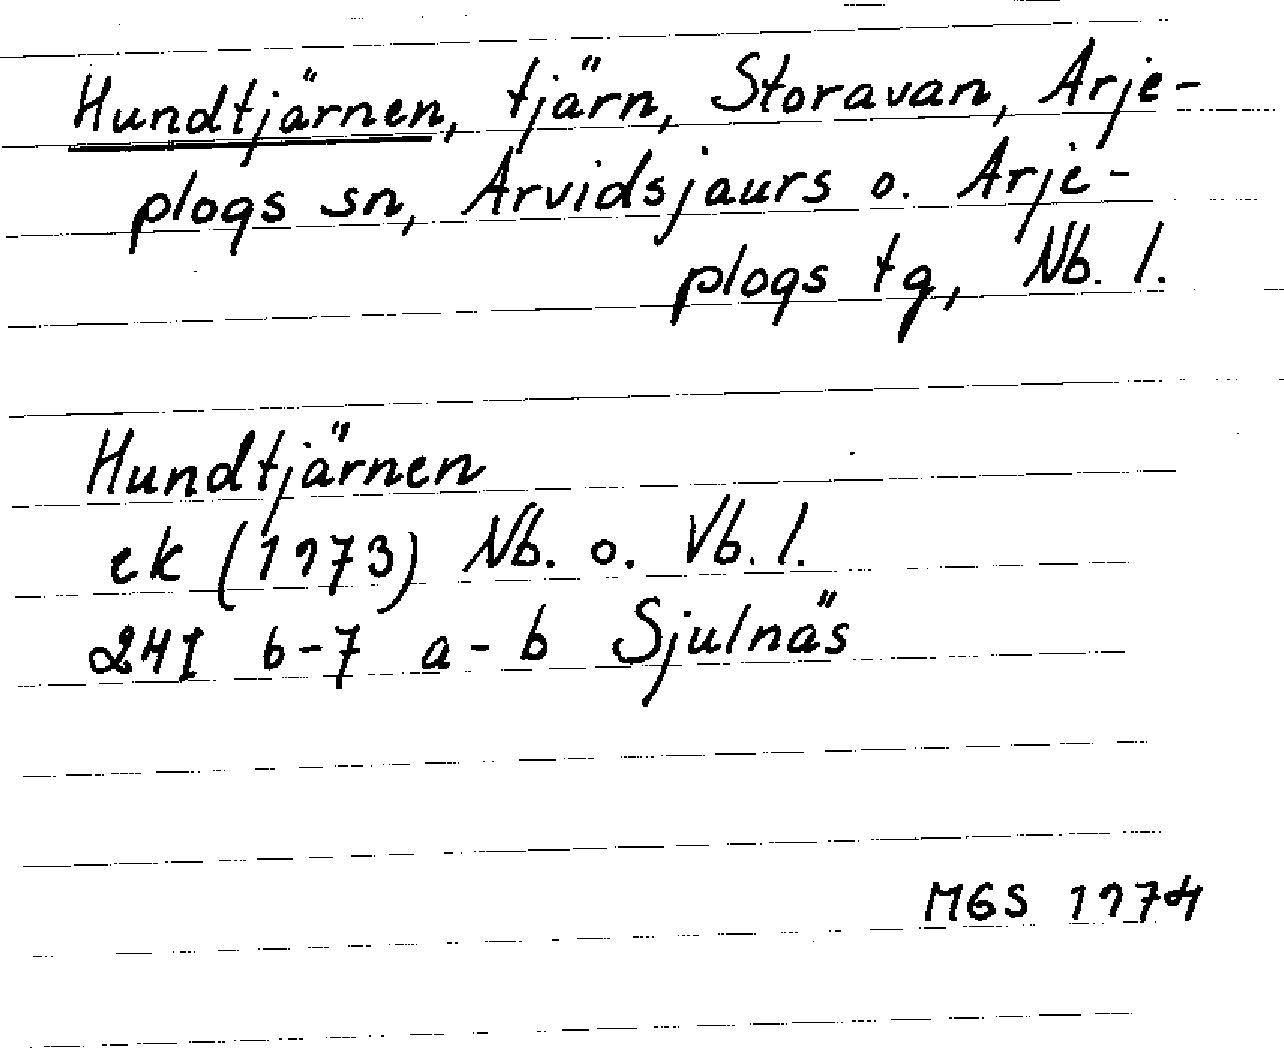 Hundtjärnen, tjärn, Storavan, Arje-
plogs sn, Arvidsjaurs o. Arje-
plogs tg, Nb. l.
Hundtjärnen
ek (1973) Nb. o. Vb. l.
24I 6-7 a-b Sjulnäs
MGS 1974